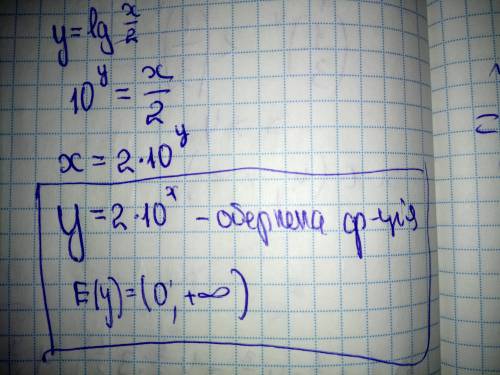 y = lg x/2
10^y = x/2
x = 2·10^y
y = 2·10^x – обернена ф-ція
E(y) = (0; +∞)